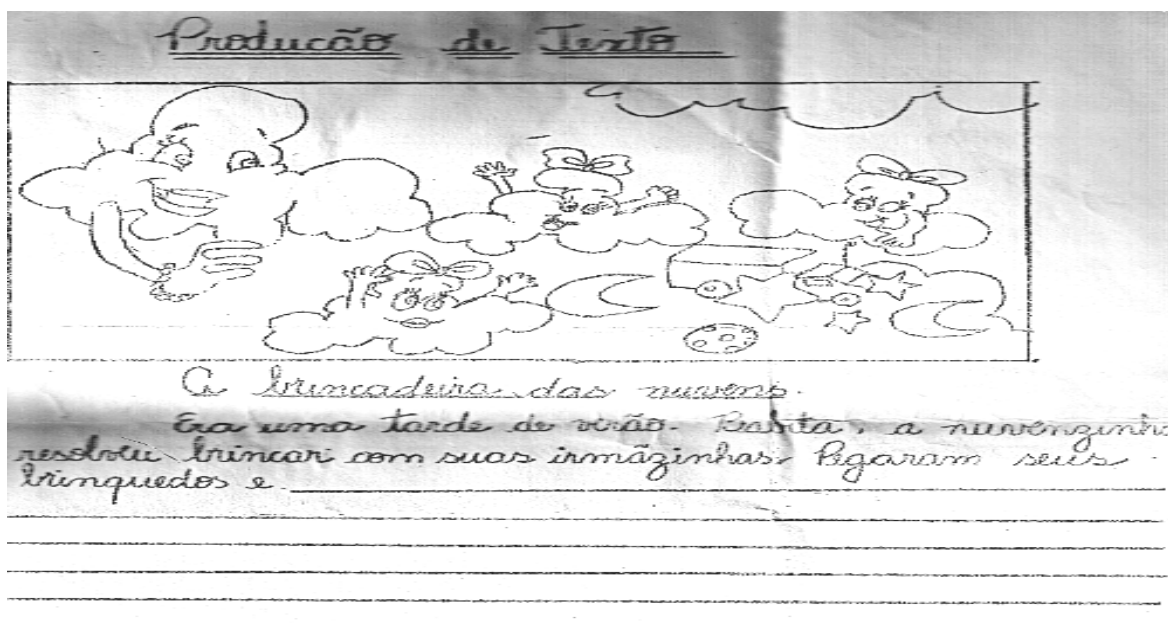 Produção de Texto
A brincadeira das nuvens.
Era uma tarde de verão. a nuvenzinha
resolveu brincar com suas irmãzinhas. Pegaram seus
brinquedos e